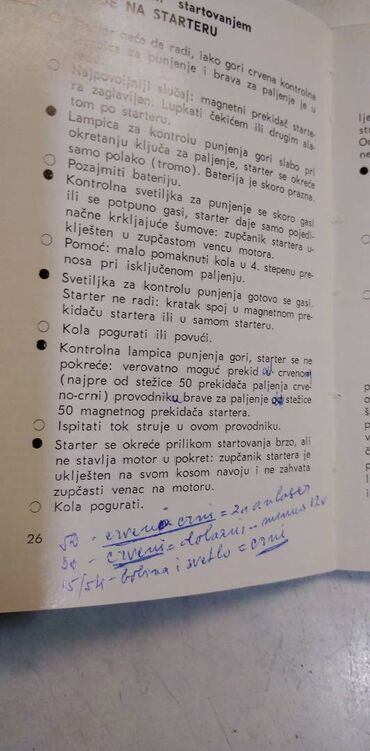 startovanjem
SE NA STARTERU
Starter neće da radi, iako gori crvena kontrolna
lampica za punjenje i brava za paljenje je u
Najpovoljniji slučaj: magnetni prekidač starte-
ra zaglavljen. Lupkati čekićem ili drugim ala-
tom po starteru.
Lampica za kontrolu punjenja gori slabo pri
okretanju ključa za paljenje, starter se okreće
samo polako (tromo). Baterija je skoro prazna.
Pozajmiti bateriju.
Kontrolna svetiljka za punjenje se skoro gasi
ili se potpuno gasi, starter daje samo pojedi-
načne krkljajuće šumove: zupčanik startera u-
klješten u zupčastom vencu motora.
Pomoć: malo pomaknuti kola u 4. stepenu pre-
nosa pri isključenom paljenju.
Svetiljka za kontrolu punjenja gotovo se gasi.
Starter ne radi: kratak spoj u magnetnom pre-
kidaču startera ili u samom starteru.
Kola pogurati ili povući.
Kontrolna lampica punjenja gori, starter se ne
pokreće: verovatno moguć prekid od crvenom
(najpre od stežice 50 prekidača paljenja crve-
no-crni) provodniku brave za paljenje do stežice
50 magnetnog prekidača startera.
Ispitati tok struje u ovom provodniku.
Starter se okreće prilikom startovanja brzo, ali
ne stavlja motor u pokret: zupčanik startera je
uklješten na svom kosom navoju i ne zahvata
zupčasti venac na motoru.
Kola pogurati.
26
50 - crveno crni = za anlaser
30 - crveni = dolazni - 12v
15/54 - bobina i svetlo = crni